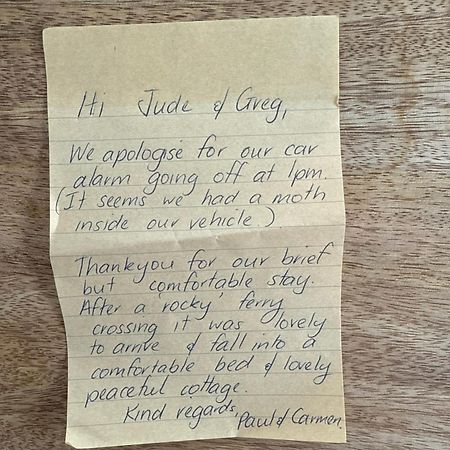 Hi Jude & Greg,
We apologise for our car
alarm going off at 1pm.
(It seems we had a moth
inside our vehicle.)
Thankyou for our brief
but comfortable stay.
After a 'rocky' ferry
crossing it was lovely
to arrive & fall into a
comfortable bed & lovely
peaceful cottage.
Kind regards,
Paul & Carmen.